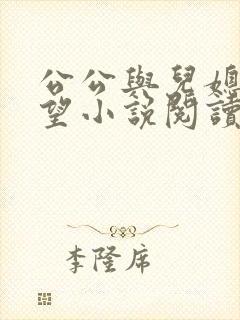 公公與兒媳
望小說閱讀
李隆席